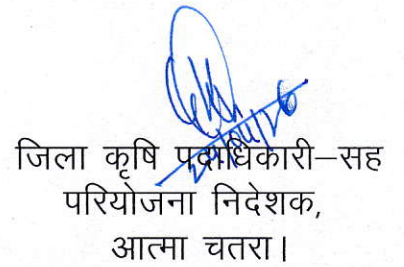 जिला कृषि पदाधिकारी–सह
परियोजना निदेशक,
आत्मा चतरा।